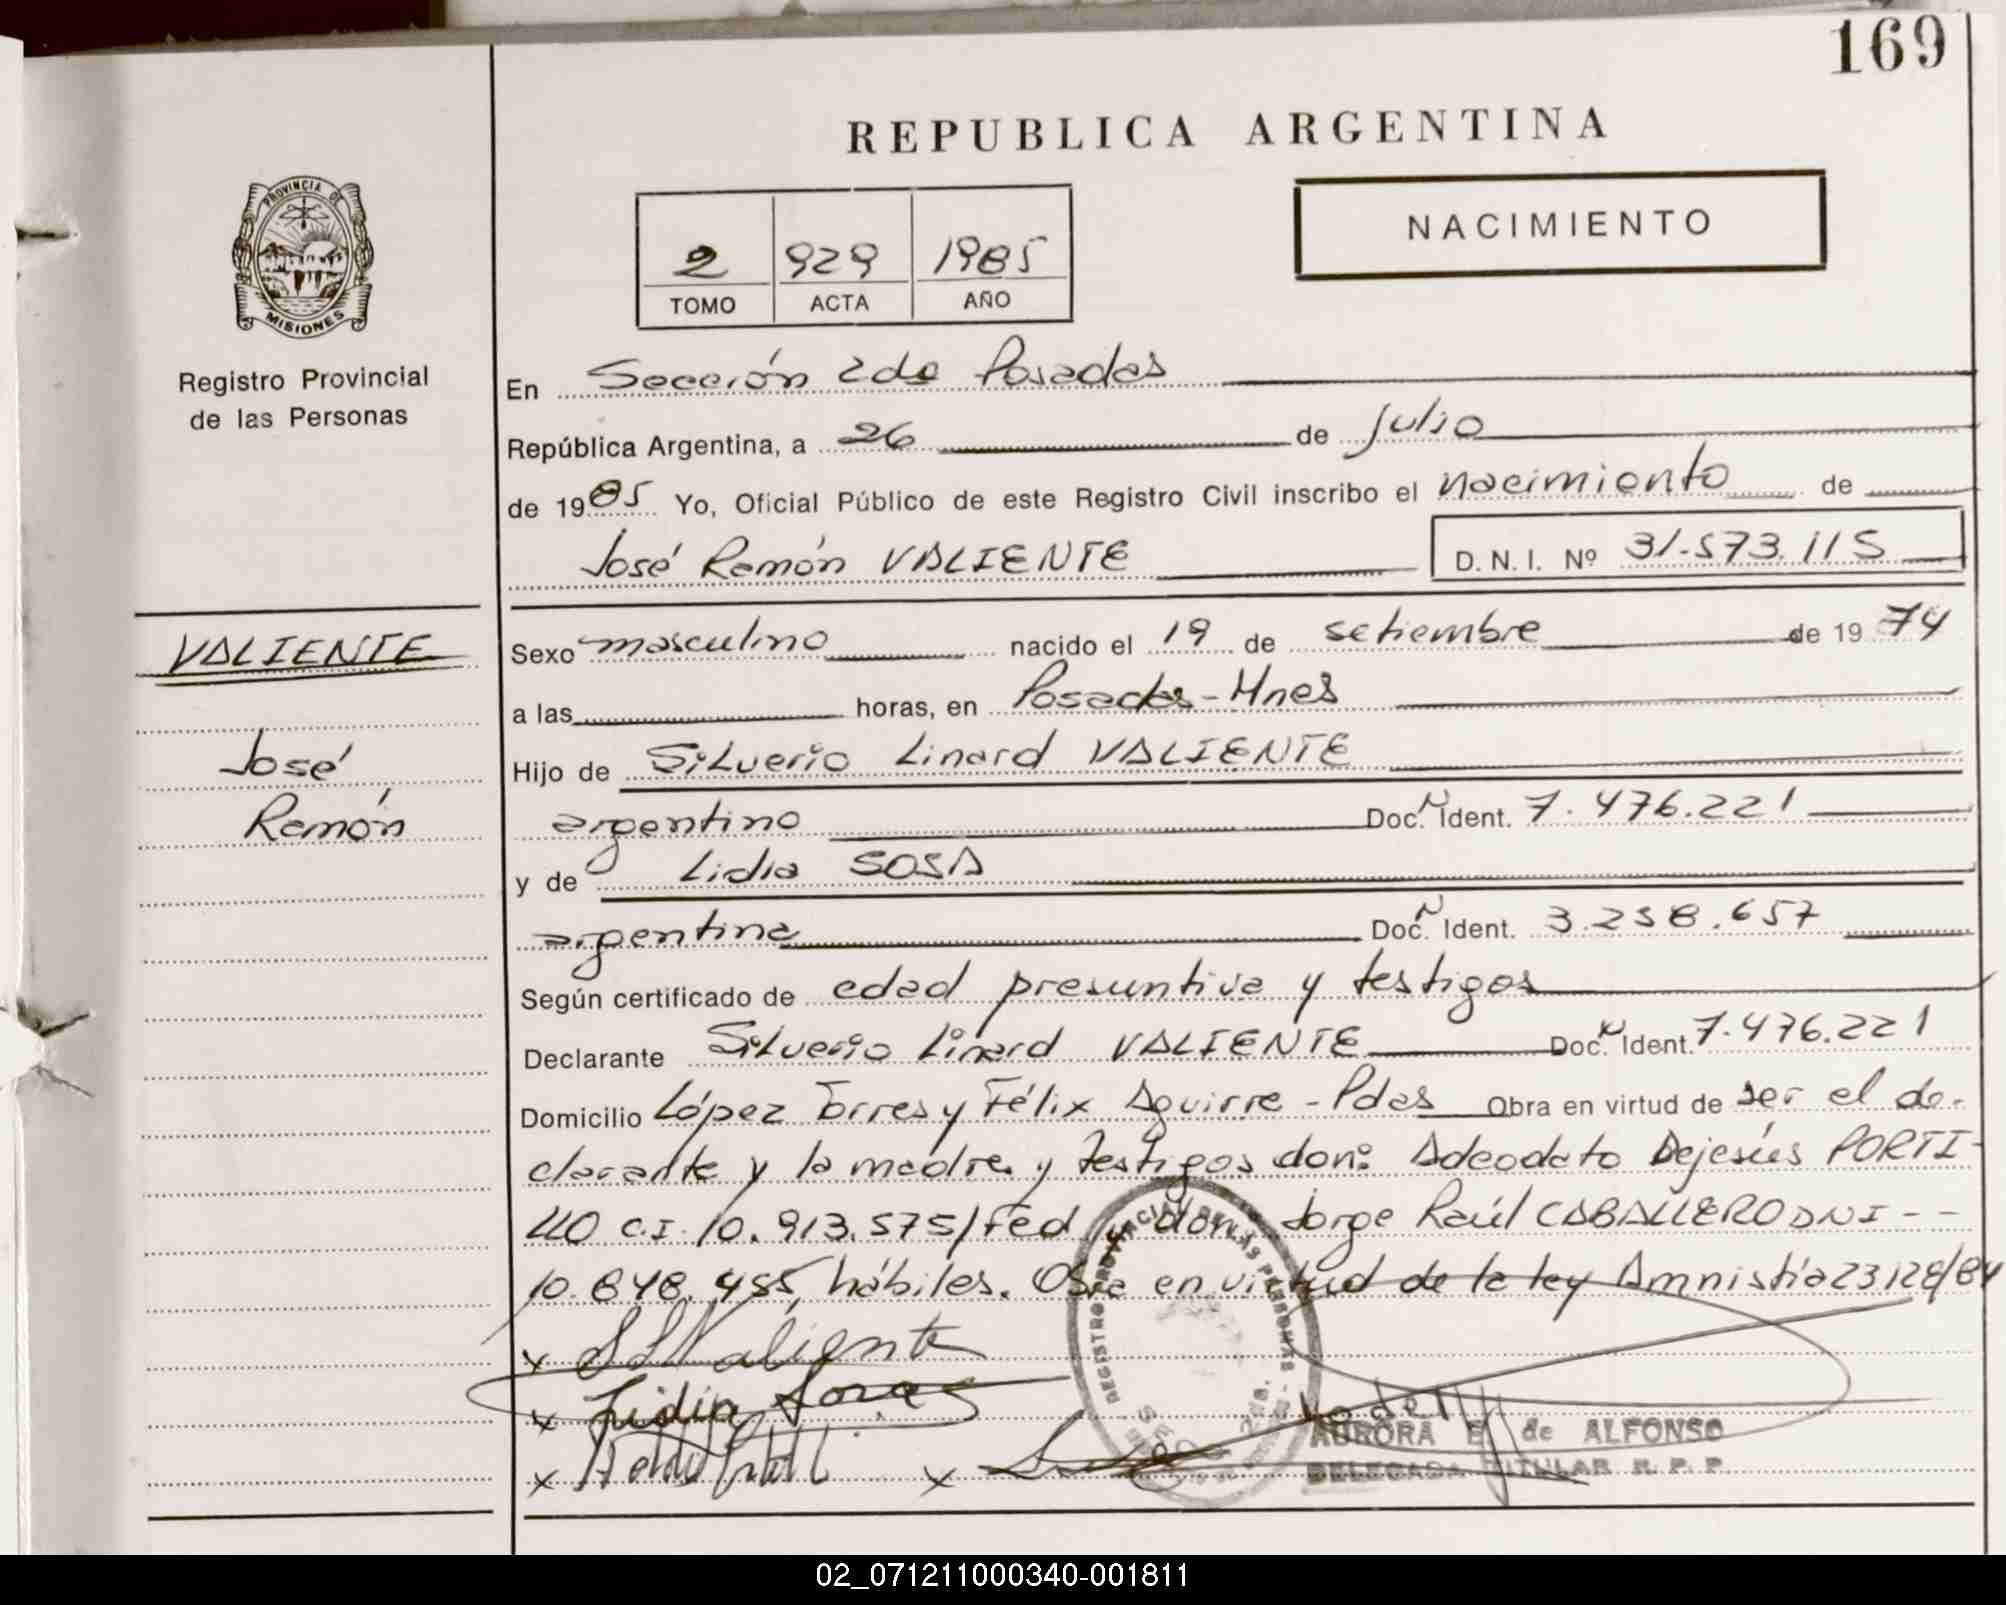 169
REPUBLICA ARGENTINA
NACIMIENTO
2 929 1985
TOMO ACTA AÑO
PROVINCIA DE
MISIONES
Registro Provincial
de las Personas
En Sección 2da Posadas
República Argentina, a 26 de Julio
de 1985 Yo, Oficial Público de este Registro Civil inscribo el nacimiento de
José Ramón VALIENTE D. N. I. Nº 31.573.115
VALIENTE
José
Ramón
Sexo masculino nacido el 19 de setiembre de 1974
a las horas, en Posadas - Mnes
Hijo de Silverio Linard VALIENTE
argentino Doc. Ident. 7.476.221
y de Lidia SOSA
argentina Doc. Ident. 3.258.657
Según certificado de edad presuntiva y testigos
Declarante Silverio Linard VALIENTE Doc. Ident. 7.476.221
Domicilio López Torres y Félix Aguirre - Pdas Obra en virtud de ser el de-
clarante y la madre y testigos don: Adeodato Dejesús PORTI-
LLO C.I. 10.913.575/Fed don Jorge Raúl CABALLERO DNI - -
10.848.455, hábiles. Obra en virtud de la ley Amnistía 23128/84
x S L Valiente
x Lidia Sosa
x
x
REGISTRO PROVINCIAL DE LAS PERSONAS
AURORA E. de ALFONSO
DELEGADA TITULAR R. P. P.
02_071211000340-001811